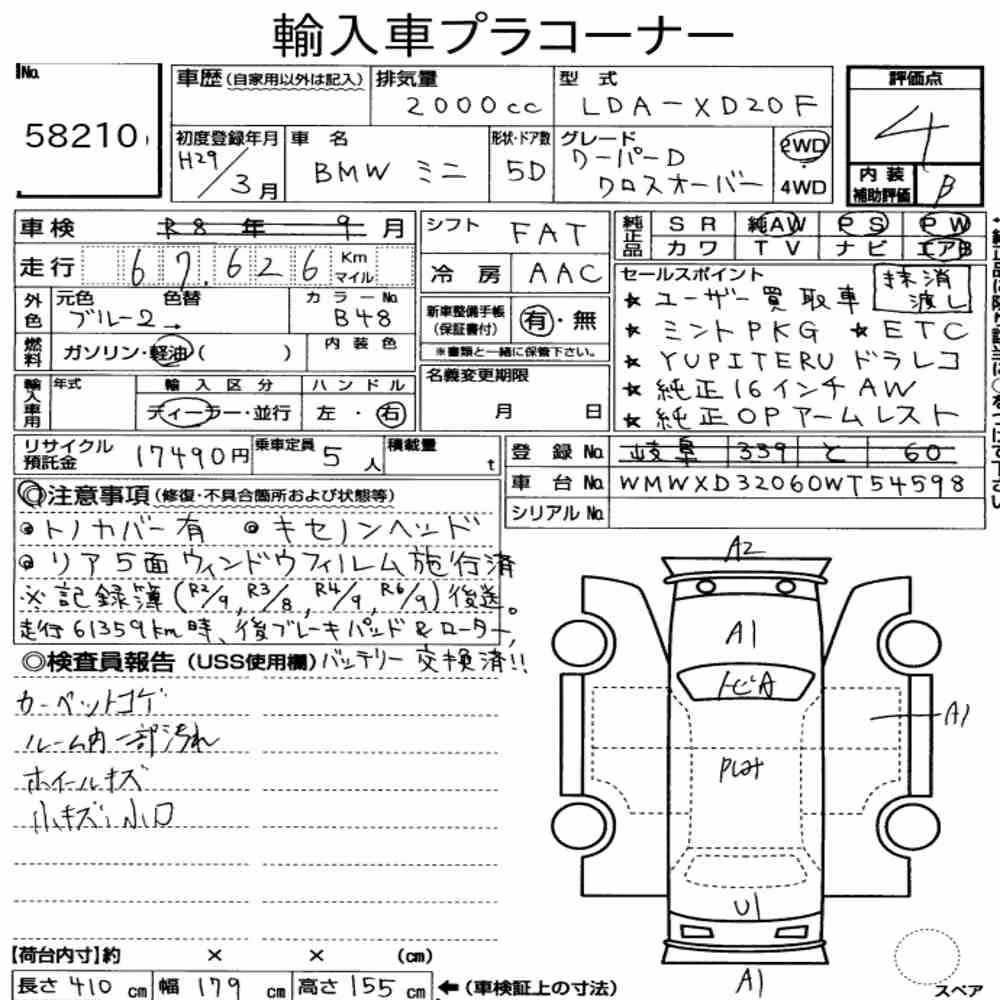 輸入車プラコーナー
No.
58210
車歴(自家用以外は記入)
排気量
2000cc
型式
LDA-XD20F
評価点
4
初度登録年月
H29/3月
車名
BMW ミニ
形状・ドア数
5D
グレード
クーパーD
クロスオーバー
2WD
4WD
内装
補助評価
B
車検 R8年 9月
シフト
FAT
純正品
SR 純AW PS PW
カワ TV ナビ エアB
走行 67.626 Km
マイル
冷房 AAC
セールスポイント
抹消
渡し
★ ユーザー買取車
★ ミントPKG ★ ETC
★ YUPITERU ドラレコ
★ 純正16インチAW
★ 純正OPアームレスト
外色
元色 色替
ブルー2→
カラーNo.
B48
新車整備手帳
(保証書付)
有・無
※書類と一緒に保管下さい。
燃料
ガソリン・軽油( )
内装色
名義変更期限
月 日
輸入車用
年式
輸入区分
ディーラー・並行
ハンドル
左・右
リサイクル
預託金
17490円
乗車定員
5人
積載量
t
登録No. 岐阜 339 と 60
車台No. WMWXD32060WT54598
シリアルNo.
◎注意事項(修復・不具合箇所および状態等)
◎トノカバー有 ◎キセノンヘッド
◎リア5面ウィンドウフィルム施行済
※記録簿(R2/9,R3/8,R4/9,R6/9)後送。
走行61359km時、後ブレーキパッド&ローター,
バッテリー交換済!!
◎検査員報告(USS使用欄)
カーペットコゲ
ルーム内一部汚れ
ホイールキズ
小キズ小凹
A2
A1
トビA
A1
U1
A1
【荷台内寸】約 × × (cm)
長さ 410 cm 幅 179 cm 高さ 155 cm
←(車検証上の寸法)
スペア